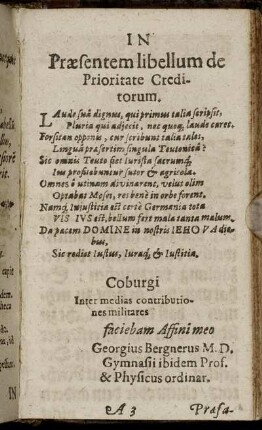 IN
Præsentem libellum de
Prioritate Credi-
torum.
LAude suâ dignus, qui primus talia scripsit,
Pluria qui adjecit, nec quoq, laude caret.
Forsitan opponis, cur scribunt talia tales,
Linguâ præsertim singula Teutonicâ?
Sic omnis Teuto fiet Iurista sacrumq́;
Ius profitabuntur sutor & agricola.
Omnes ô utinam divinarent, velut olim
Optabat Moses, res benè in orbe forent.
Namq́; Injustitia est certè Germania tota
VIS IVS est, bellum fert mala tanta malum.
Da pacem DOMINE in nostris IEHOVA die-
bus,
Sic rediet Iustus, Iuraq́; & Iustitia.
Coburgi
Inter medias contributio-
nes militares
faciebam Affini meo
Georgius Bergnerus M. D.
Gymnasii ibidem Prof.
& Physicus ordinar.
A 3 Præfa-
IN